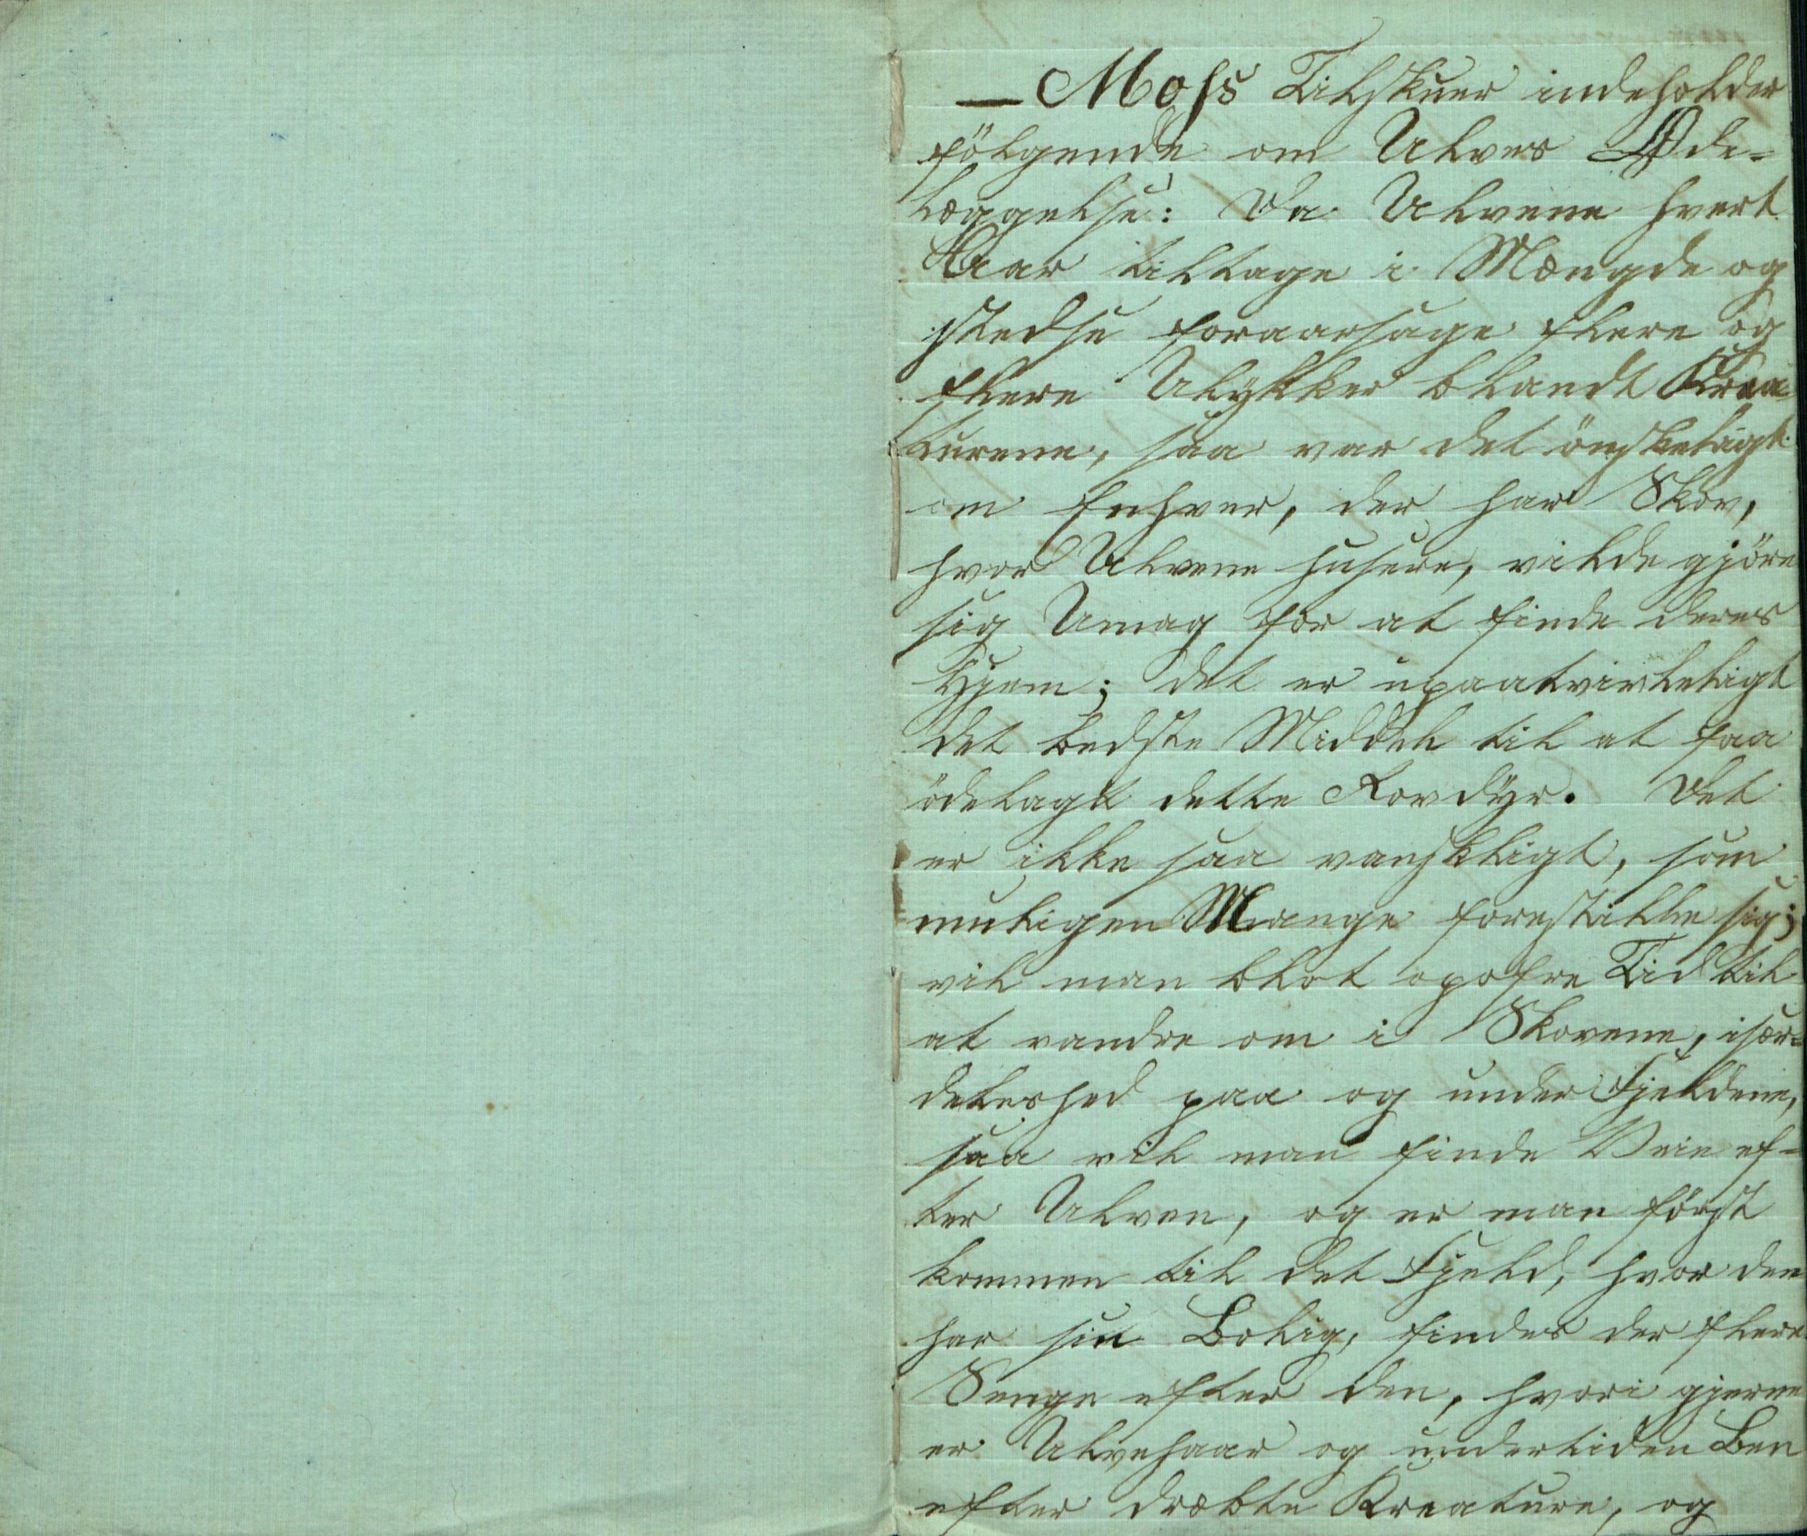 — Moss Tilskuer indeholder
fölgende om Ulves Øde-
læggelse: Da Ulvene hvert
Aar tiltage i Mængde og
stedse foraarsage flere og
flere Ulykker blandt Krea-
turene, saa var det önskeligt
om Enhver, der har Skov,
hvor Ulvene husere, vilde gjöre
sig Umag for at finde deres
Hjem; det er upaatvivleligt
det bedste Middel til at faa
ödelagt dette Rovdyr. Det
er ikke saa vanskligt, som
muligen Mange forestille sig;
vil man blot opofre Tid til
at vandre om i Skovene, især-
deleshed paa og under Fjeldene,
saa vil man finde Veie ef-
ter Ulven, og er man först
kommen til det Fjeld, hvor den
har sin Bolig, findes der flere
Senge efter den, hvori gjerne
er Ulvehaar og undertiden Ben
efter dræbte Kreature, og